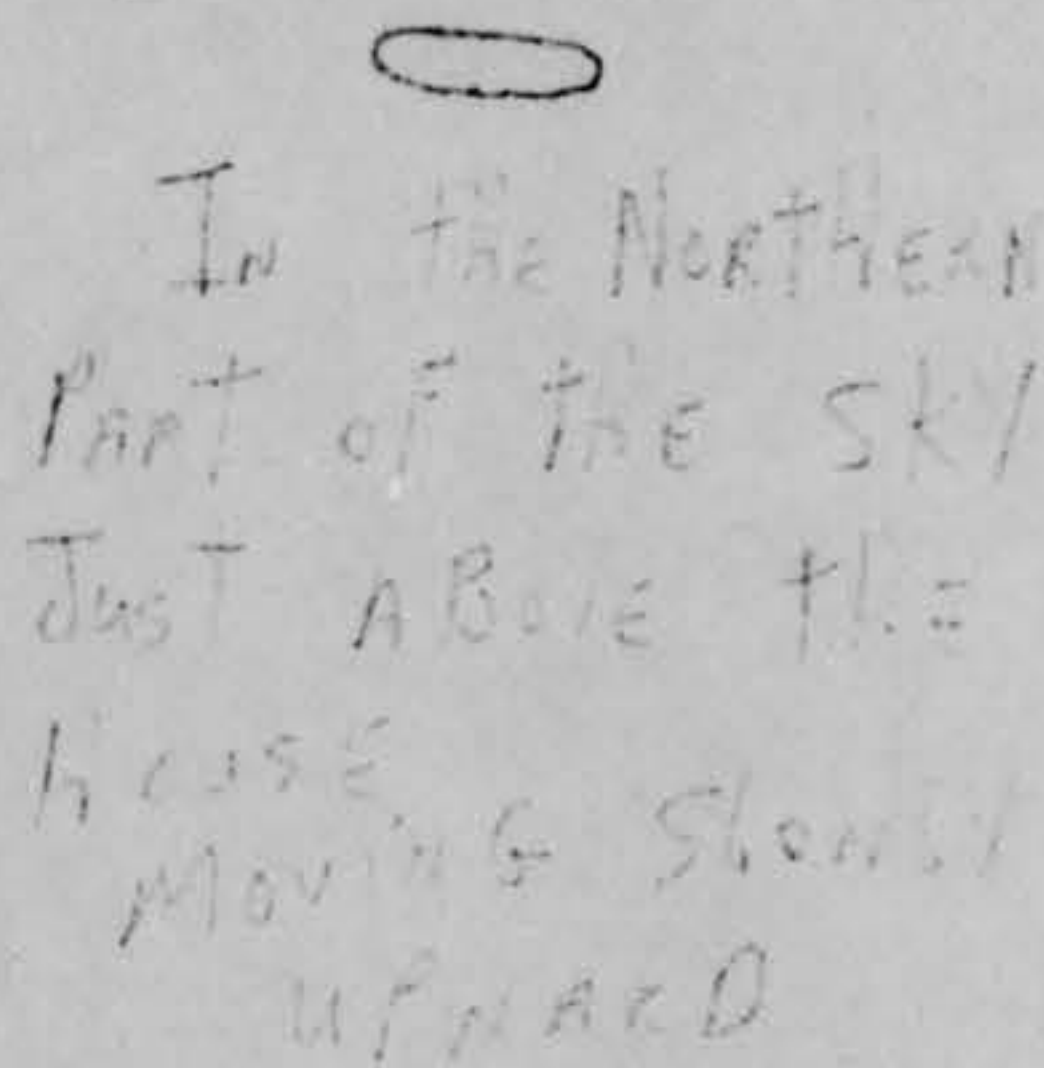 In the Northern
Part of the Sky
Just Above the
house
Moving Slowly
upward